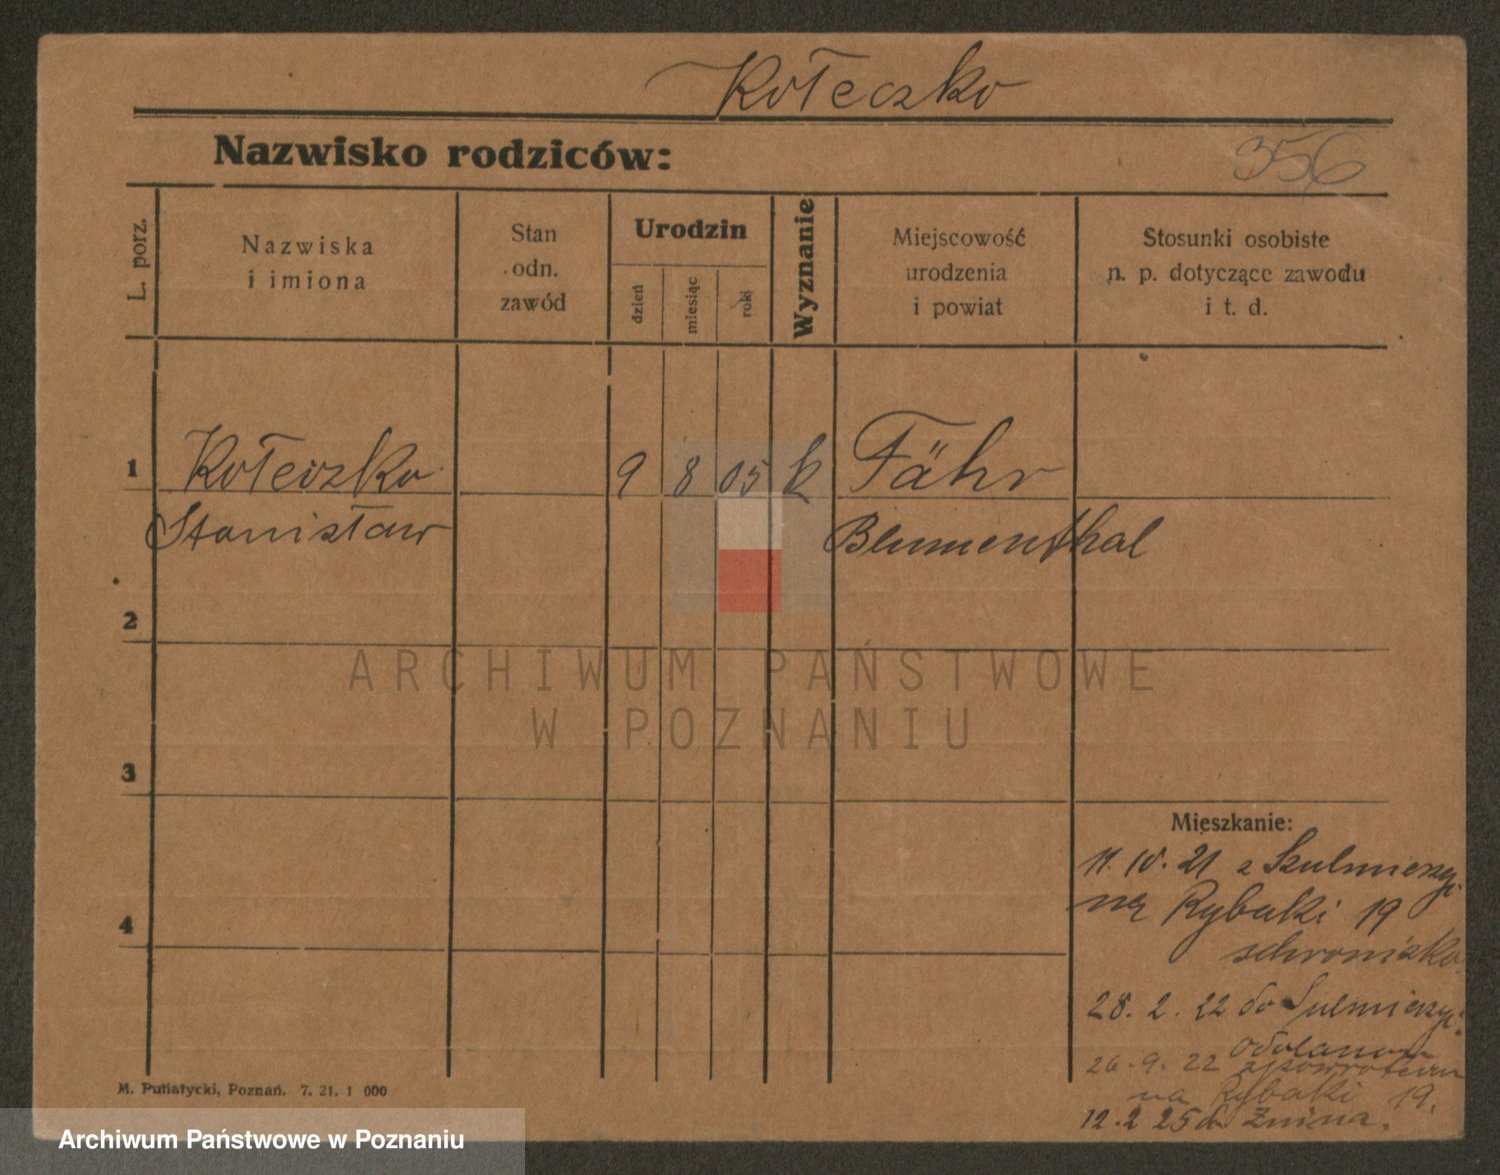 Kołeczko
Nazwisko rodziców:
356
L. porz.
Nazwiska
i imiona
Stan
odn.
zawód
Urodzin
dzień
miesiąc
rok
Wyznanie
Miejscowość
urodzenia
i powiat
Stosunki osobiste
n. p. dotyczące zawodu
i t. d.
1
Kołeczko
9
8
05
k
Fähr
Stanisław
Blumenthal
2
ARCHIWUM PAŃSTWOWE
W POZNANIU
3
Mieszkanie:
11. 10. 21 z Szulmierzyc
na Rybaki 19
4
schronisko
28. 2. 22 do Sulmierzyc
Odolanow
26. 9. 22 zpowrotem
na Rybaki 19.
12. 2 25 do Żnina.
M. Putiatycki, Poznań. 7. 21. 1 000
Archiwum Państwowe w Poznaniu